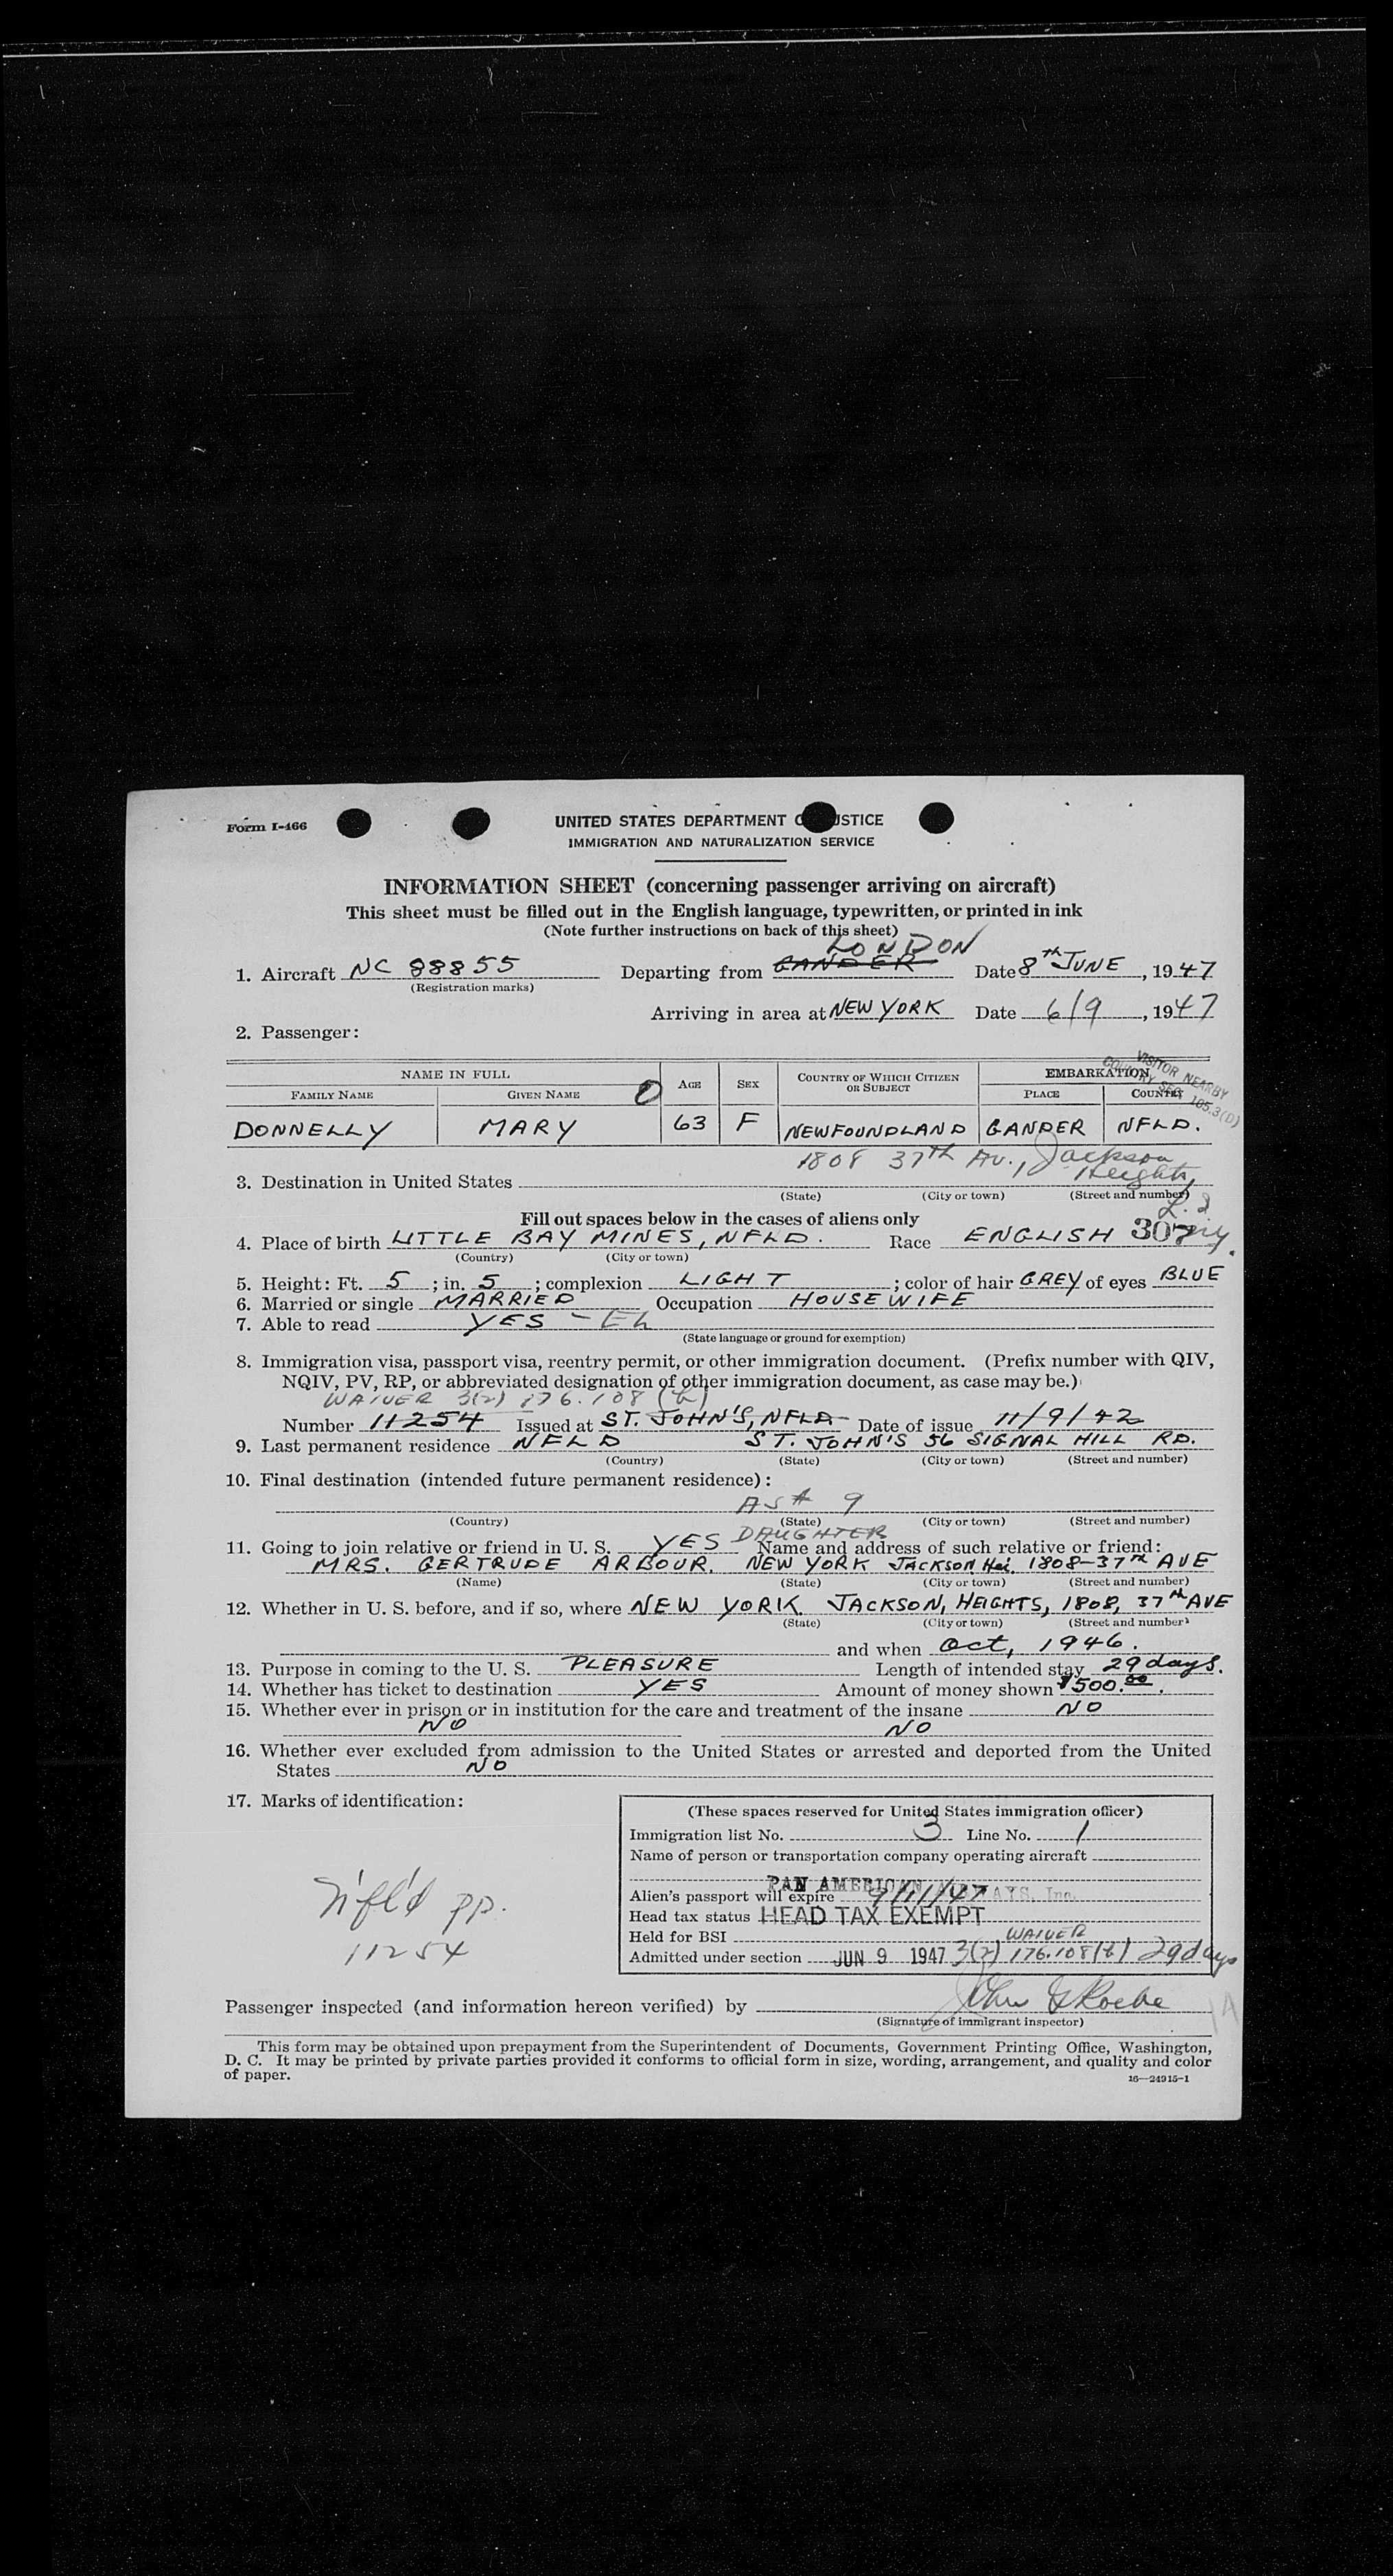 Form I-466
UNITED STATES DEPARTMENT OF JUSTICE
IMMIGRATION AND NATURALIZATION SERVICE
INFORMATION SHEET (concerning passenger arriving on aircraft)
This sheet must be filled out in the English language, typewritten, or printed in ink
(Note further instructions on back of this sheet)
LONDON
1. Aircraft NC 88855 Departing from GANDER Date 8th JUNE, 1947
(Registration marks)
Arriving in area at NEW YORK Date 6/9, 1947
2. Passenger:
VISITOR NEARBY
COUNTRY SEC 105.3(D)
NAME IN FULL AGE SEX COUNTRY OF WHICH CITIZEN OR SUBJECT EMBARKATION
FAMILY NAME GIVEN NAME PLACE COUNTRY
DONNELLY MARY 63 F NEWFOUNDLAND GANDER NFLD.
1808 37th Av., Jackson
Heights
3. Destination in United States
(State) (City or town) (Street and number)
L. I
Fill out spaces below in the cases of aliens only
4. Place of birth LITTLE BAY MINES, NFLD. Race ENGLISH 307
(Country) (City or town)
5. Height: Ft. 5; in. 5; complexion LIGHT; color of hair GREY of eyes BLUE
6. Married or single MARRIED Occupation HOUSEWIFE
7. Able to read YES -
(State language or ground for exemption)
8. Immigration visa, passport visa, reentry permit, or other immigration document. (Prefix number with QIV,
NQIV, PV, RP, or abbreviated designation of other immigration document, as case may be.)
WAIVER 3(2) 176.108 (b)
Number 11254 Issued at ST. JOHN'S, NFLD Date of issue 11/9/42
9. Last permanent residence NFLD ST. JOHN'S 56 SIGNAL HILL RD.
(Country) (State) (City or town) (Street and number)
10. Final destination (intended future permanent residence):
AS # 9
(Country) (State) (City or town) (Street and number)
DAUGHTER
11. Going to join relative or friend in U. S. YES Name and address of such relative or friend:
MRS. GERTRUDE ARBOUR. NEW YORK JACKSON Hei. 1808-37th AVE
(Name) (State) (City or town) (Street and number)
12. Whether in U. S. before, and if so, where NEW YORK. JACKSON, HEIGHTS, 1808, 37th AVE
(State) (City or town) (Street and number)
and when Oct, 1946.
13. Purpose in coming to the U. S. PLEASURE Length of intended stay 29 days.
14. Whether has ticket to destination YES Amount of money shown $500.00.
15. Whether ever in prison or in institution for the care and treatment of the insane NO
NO NO
16. Whether ever excluded from admission to the United States or arrested and deported from the United
States NO
17. Marks of identification:
Nfl'd pp.
11254
(These spaces reserved for United States immigration officer)
Immigration list No. 3 Line No. 1
Name of person or transportation company operating aircraft
PAN AMERICAN AIRWAYS, Inc.
Alien's passport will expire 9/11/47
Head tax status HEAD TAX EXEMPT
Held for BSI WAIVER
Admitted under section JUN 9 1947 3(2) 176.108(b) 29 days
Passenger inspected (and information hereon verified) by John Roche
(Signature of immigrant inspector)
This form may be obtained upon prepayment from the Superintendent of Documents, Government Printing Office, Washington,
D. C. It may be printed by private parties provided it conforms to official form in size, wording, arrangement, and quality and color
of paper.
16—24915-1